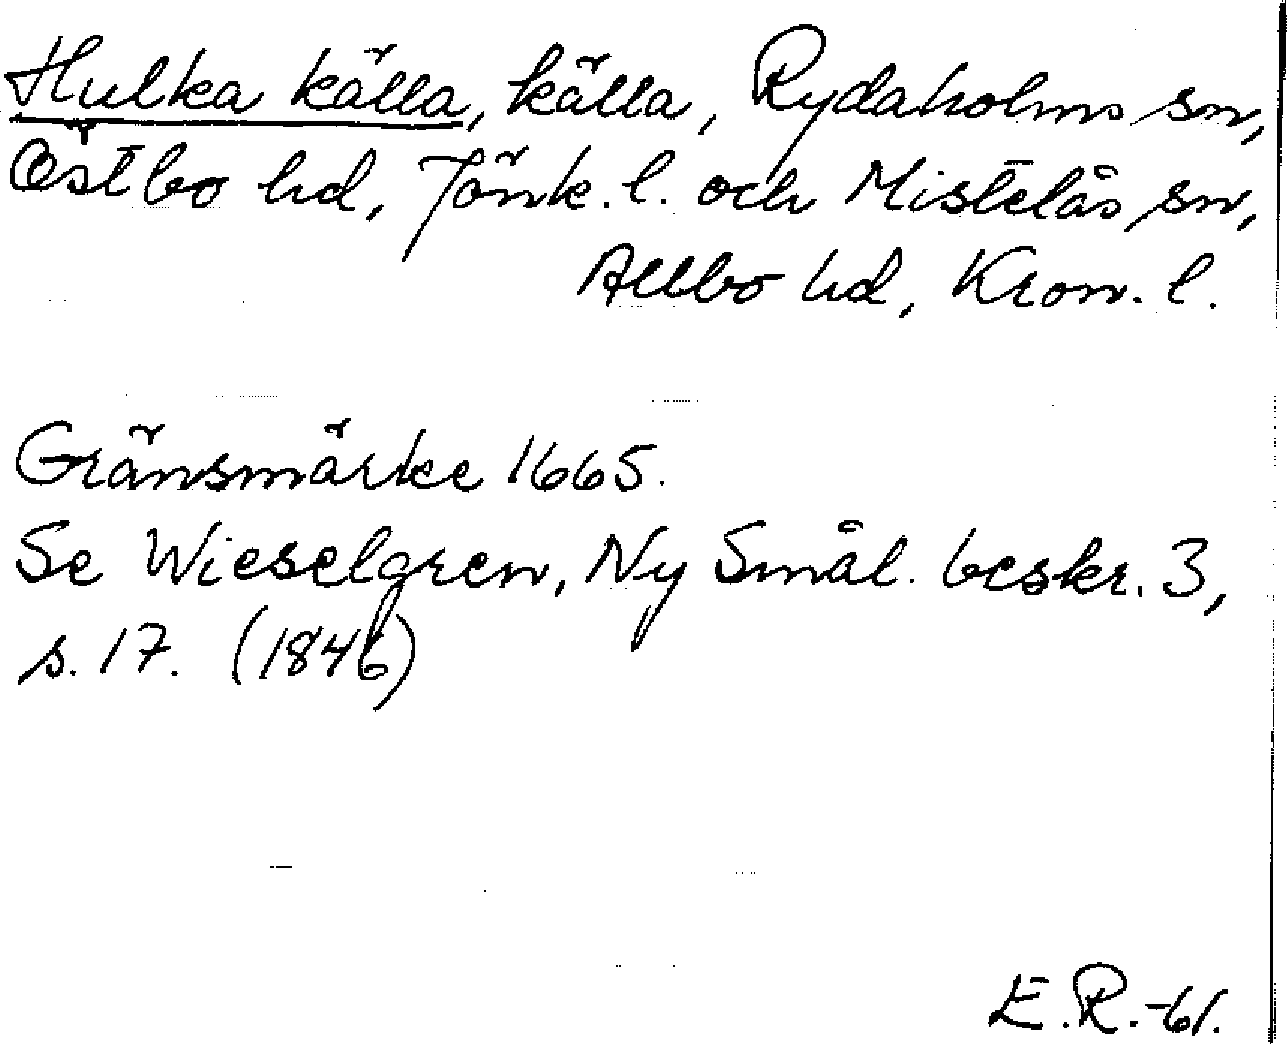 Hulka källa, källa, Rydaholms sn,
Östbo hd, Jönk. l. och Mistelås sn,
Allbo hd, Kron. l.
Gränsmärke 1665.
Se Wieselgren, Ny Smål. beskr. 3,
s. 17. (1846)
E.R.-61.